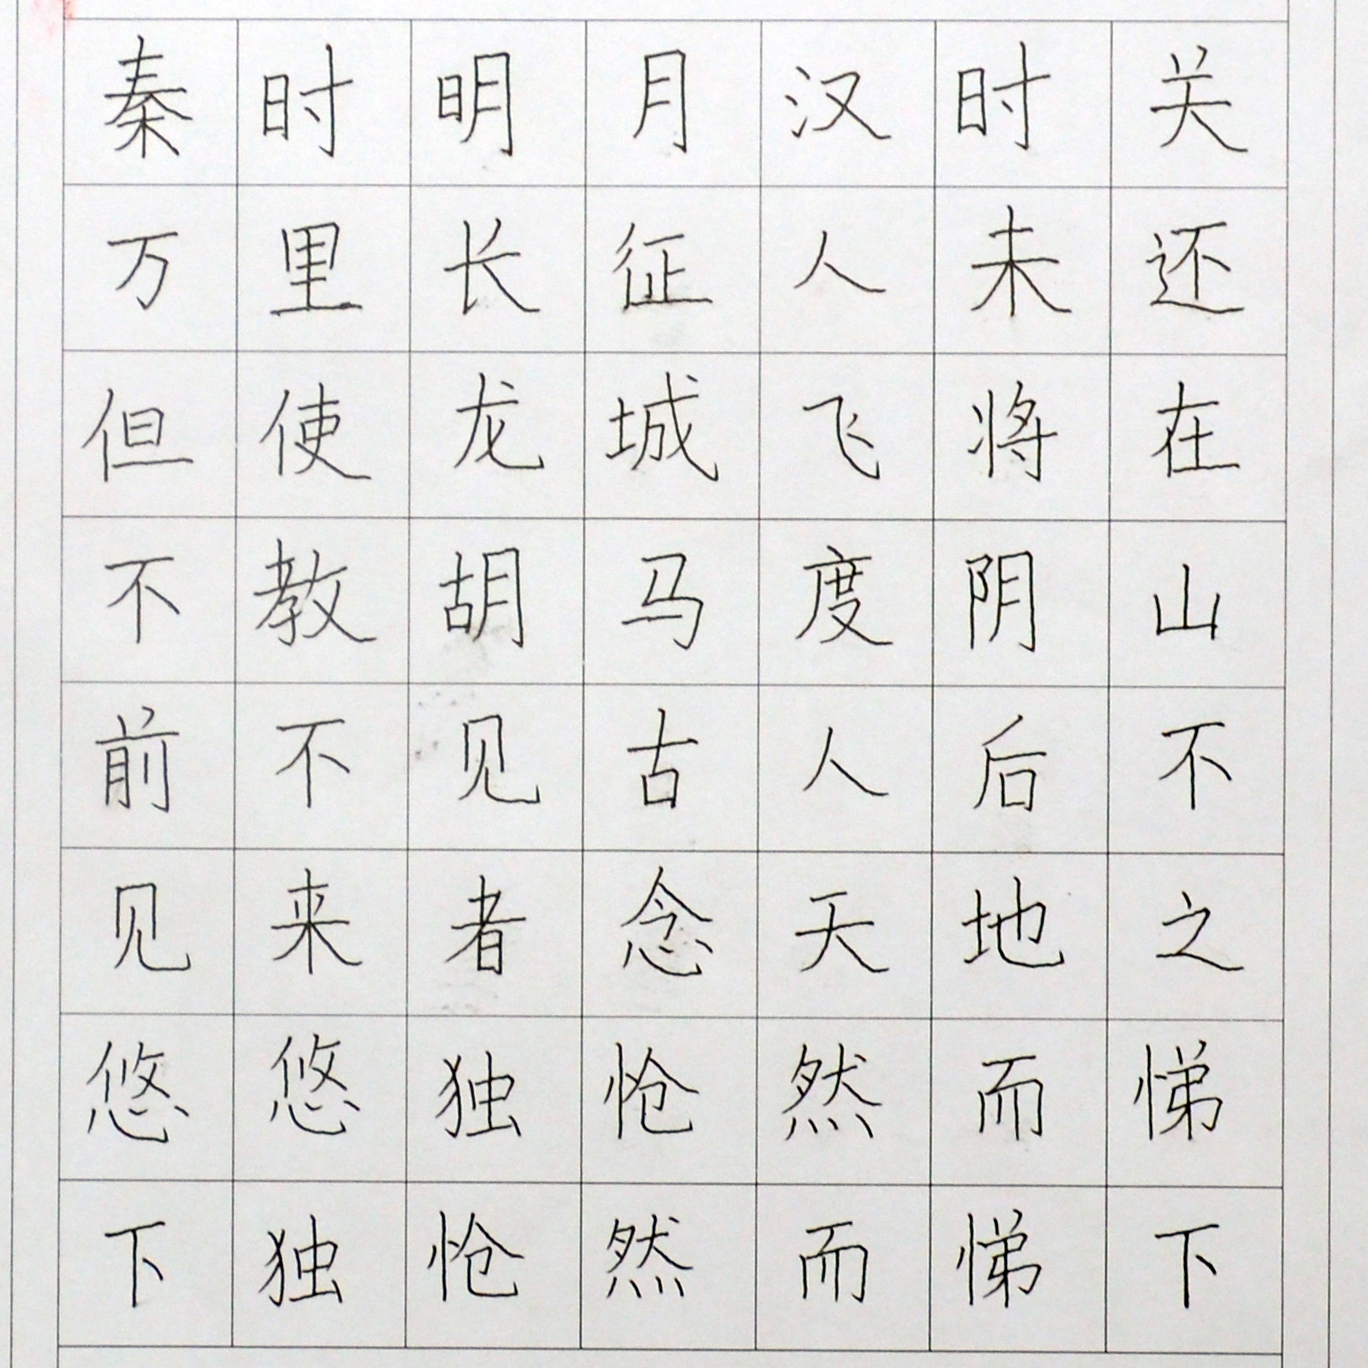 秦时明月汉时关
万里长征人未还
但使龙城飞将在
不教胡马度阴山
前不见古人后不
见来者念天地之
悠悠独怆然而悌
下独怆然而悌下